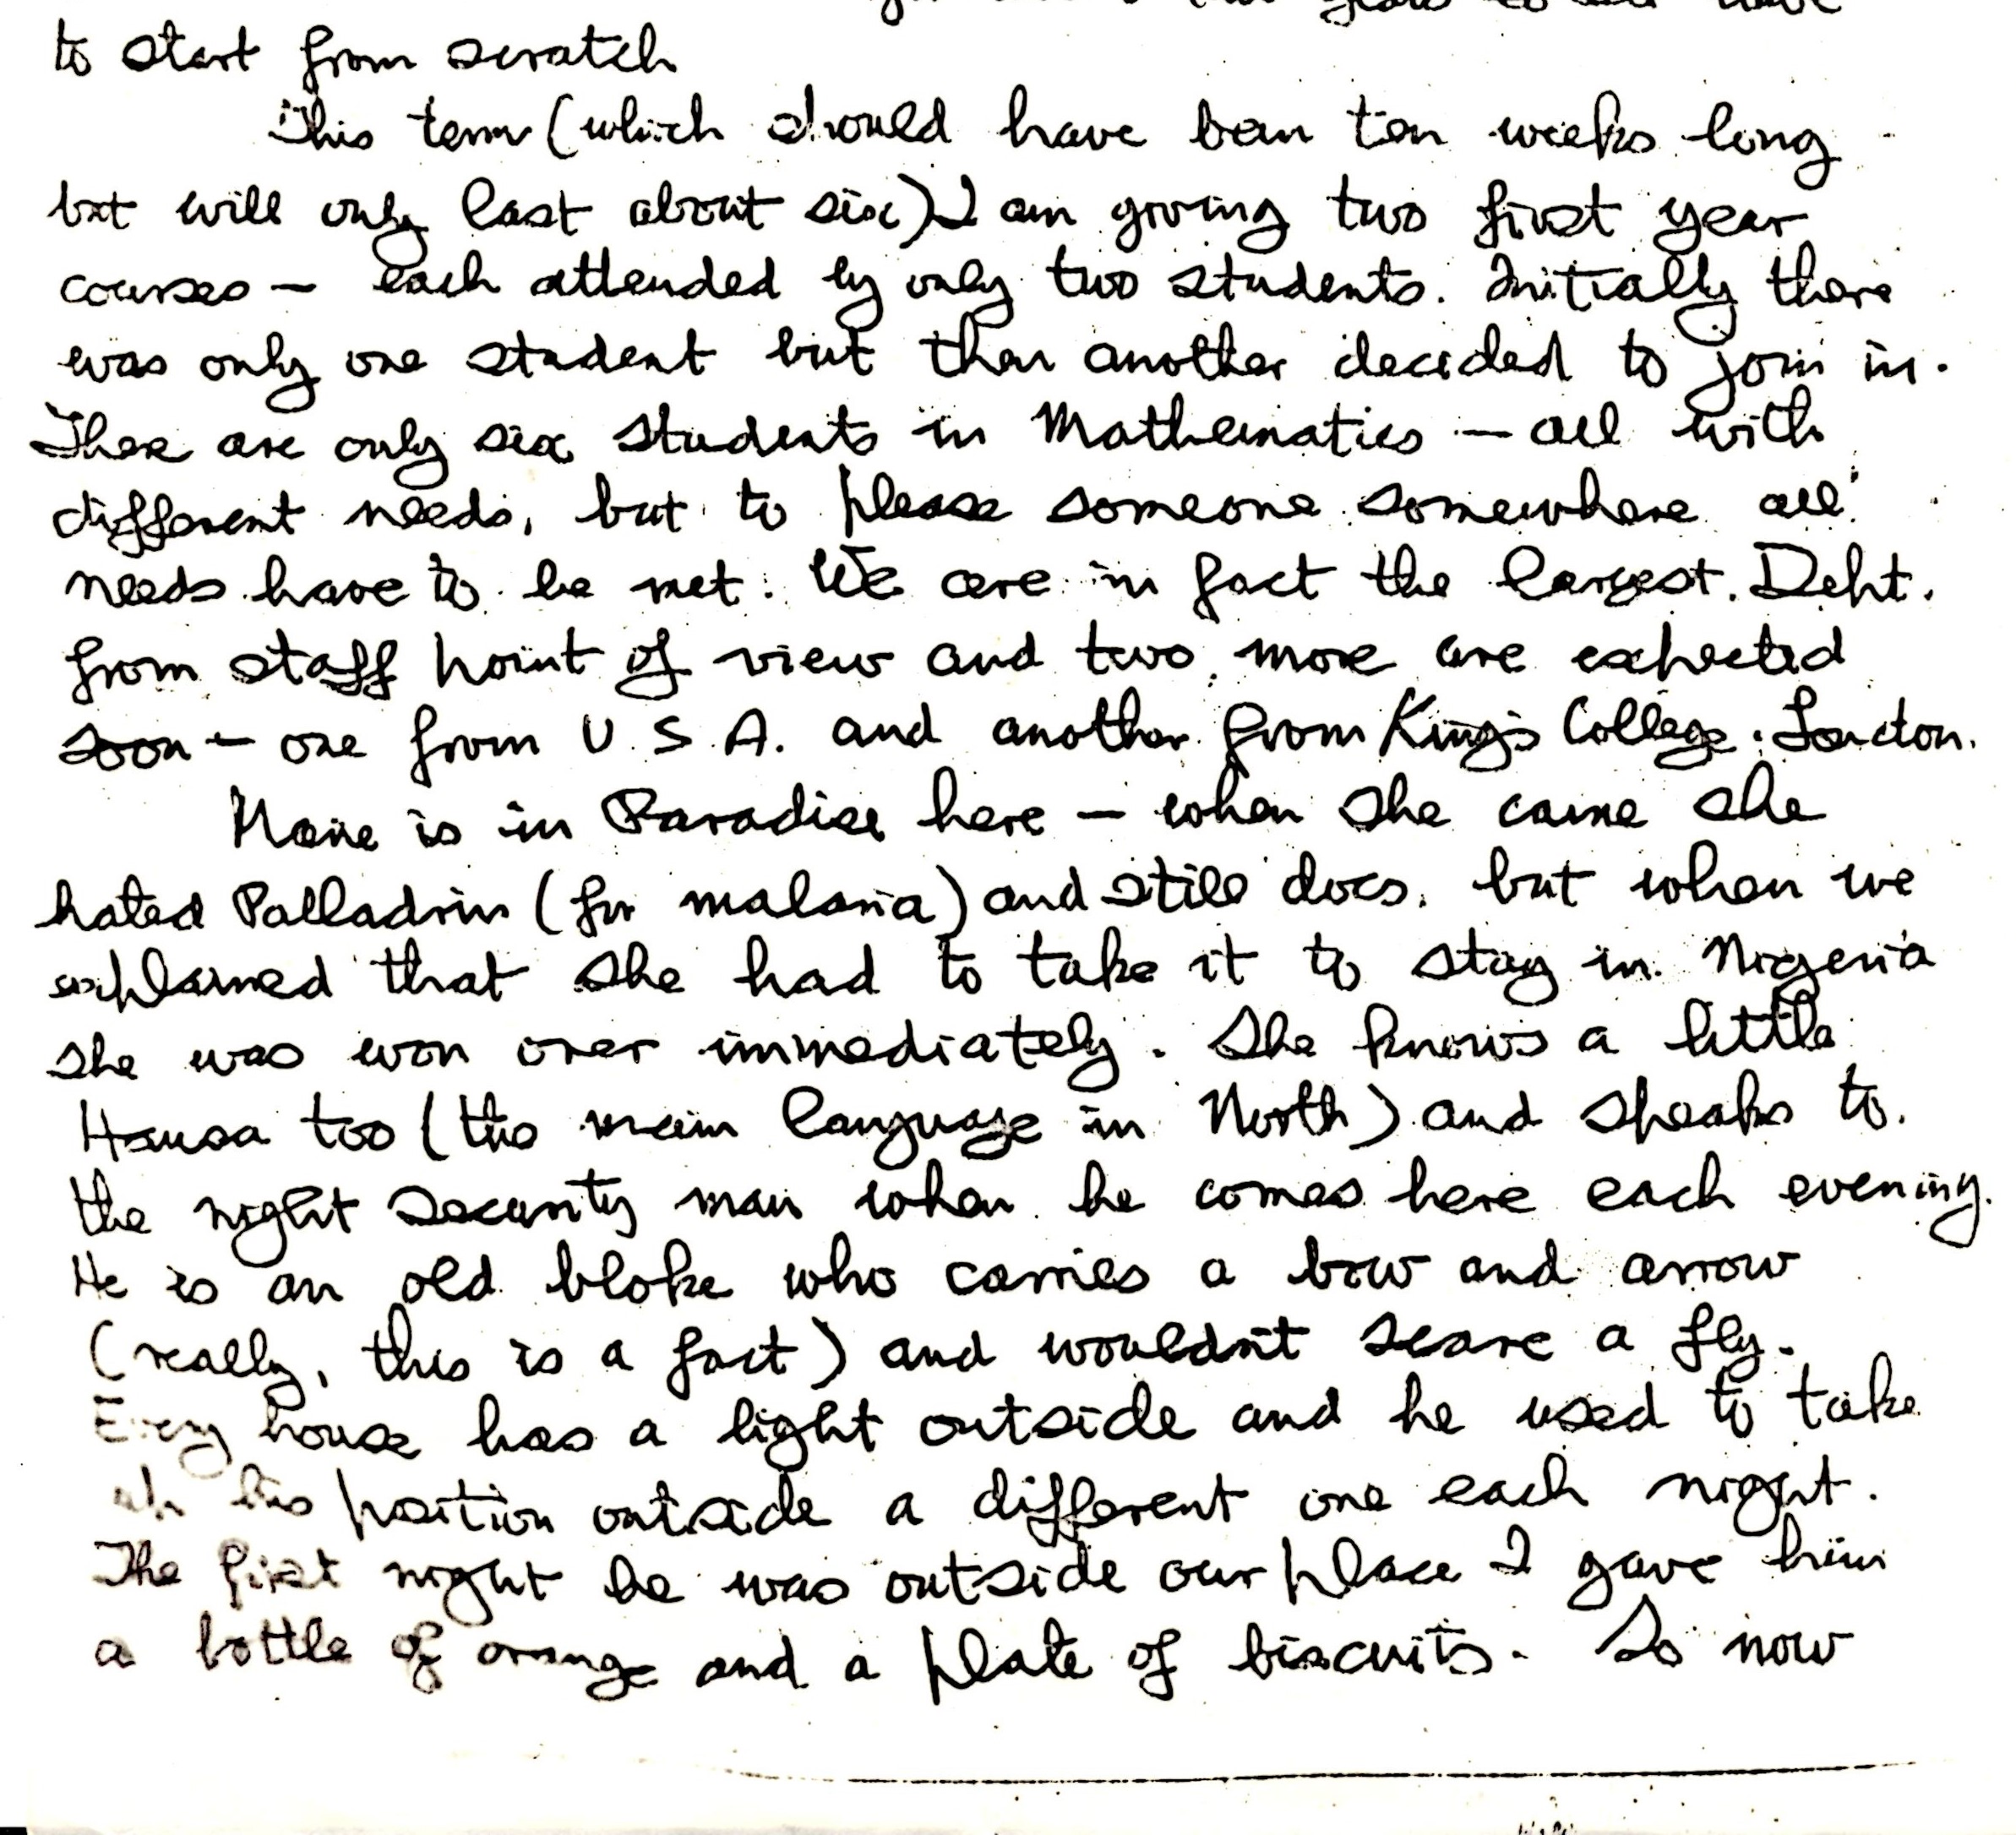 to start from scratch
This term (which should have been ten weeks long
but will only last about six) I am giving two first year
courses – each attended by only two students. Initially there
was only one student but then another decided to join in.
There are only six students in Mathematics – all with
different needs, but to please someone somewhere all
needs have to be met. We are in fact the largest. Dept.
from staff point of view and two more are expected
soon – one from U.S.A. and another from King's College. London.
is in Paradise here – when she came she
hated Palladrin (for malaria) and still does. but when we
explained that she had to take it to stay in Nigeria
she was won over immediately. She knows a little
Hausa too (the main language in North) and speaks to
the night security man when he comes here each evening.
He is an old bloke who carries a bow and arrow
(really, this is a fact) and wouldn't scare a fly.
Every house has a light outside and he used to take
up his position outside a different one each night.
The first night he was outside our place I gave him
a bottle of orange and a plate of biscuits. So now